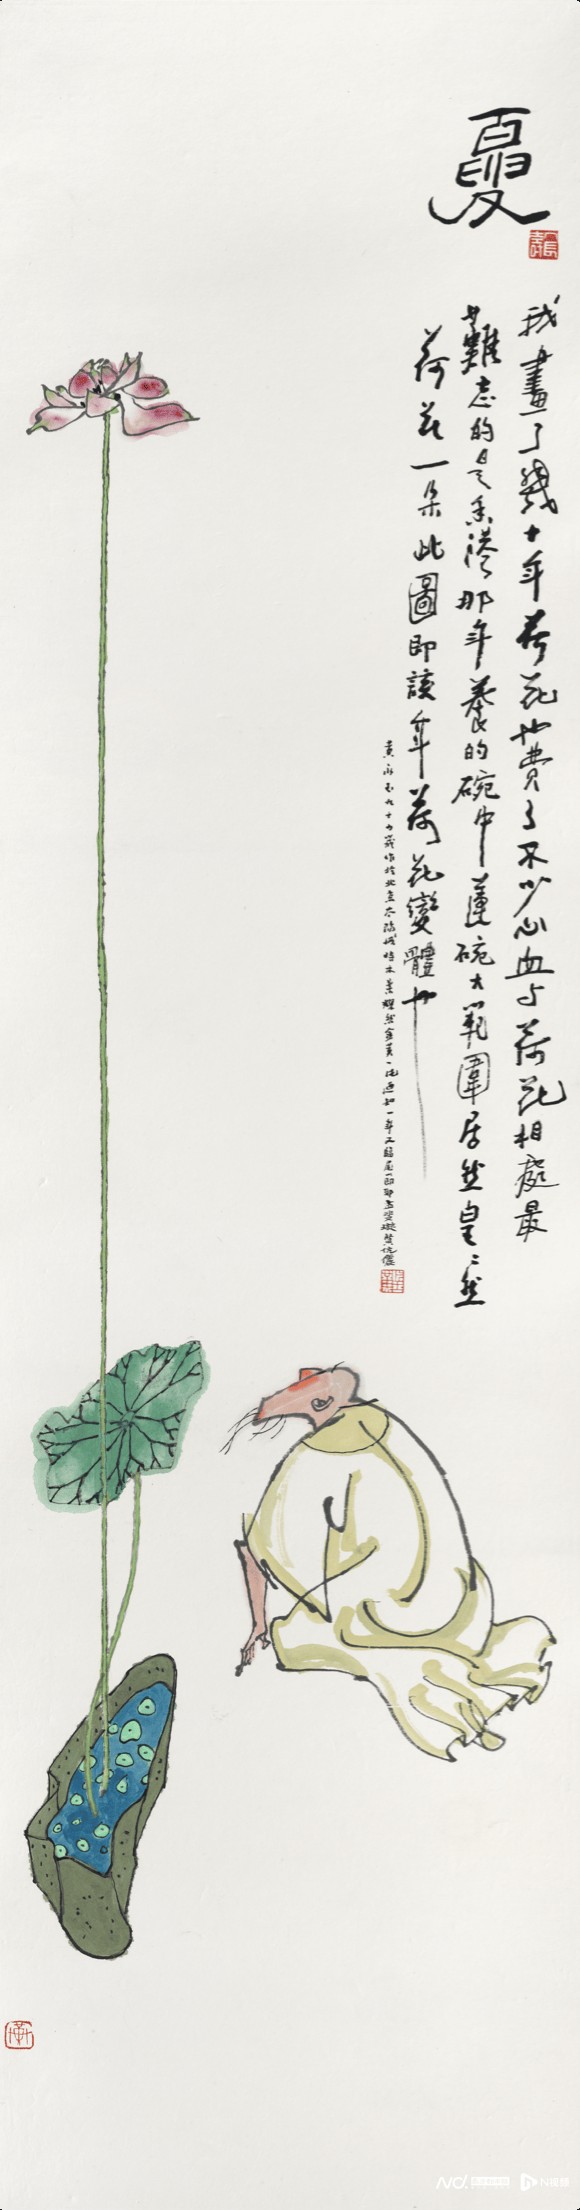 夏
我畫了幾十年荷花也費了不少心血与荷花相處最
難忘的是香港那年養的碗中蓮碗大範圍居然皇皇然
荷花一朵此圖即該年荷花變體也
黃永玉九十六歲作於北京太陽城時